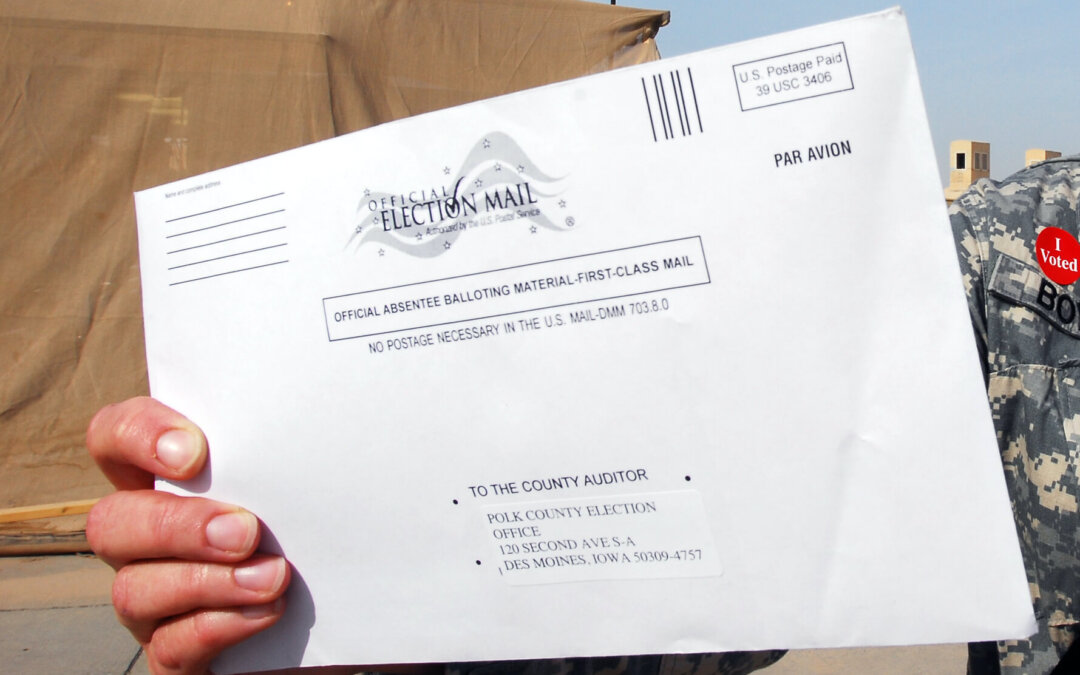 U.S. Postage Paid
39 USC 3406
PAR AVION
Name and complete address
OFFICIAL
ELECTION MAIL
Authorized by the U.S. Postal Service
®
OFFICIAL ABSENTEE BALLOTING MATERIAL-FIRST-CLASS MAIL
NO POSTAGE NECESSARY IN THE U.S. MAIL-DMM 703.8.0
TO THE COUNTY AUDITOR
POLK COUNTY ELECTION
OFFICE
120 SECOND AVE S-A
DES MOINES, IOWA 50309-4757
I
Voted
BO